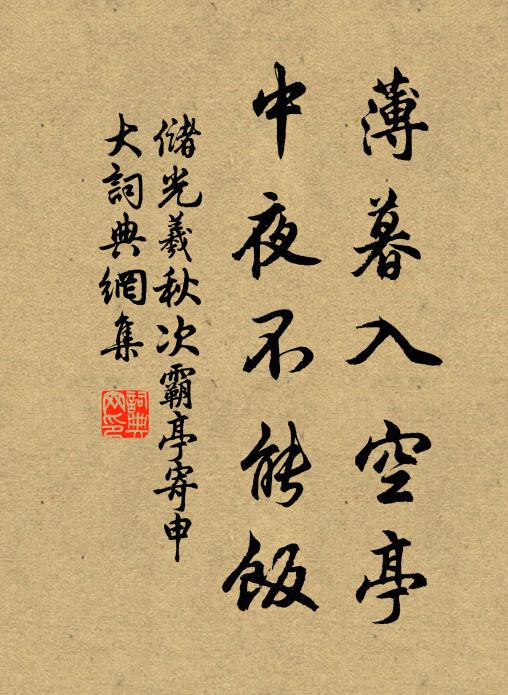 薄暮入空亭
中夜不能飯
儲光羲秋次霸亭寄申
大詞典網集
詞典网印